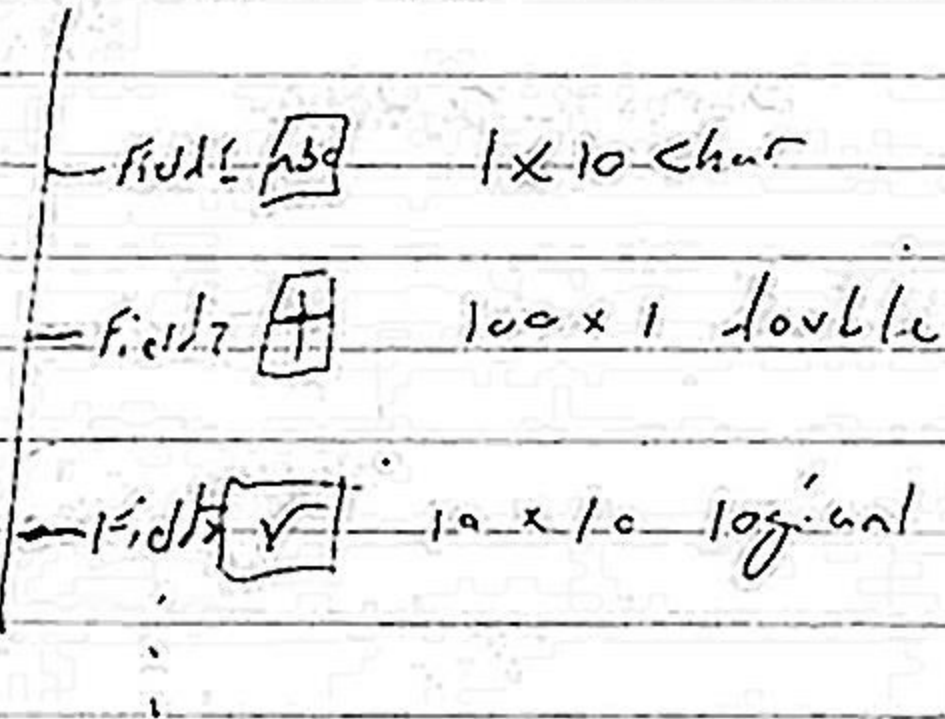 Field1 abc 1 x 10 char
Field2 100 x 1 double
Field3 10 x 10 logical